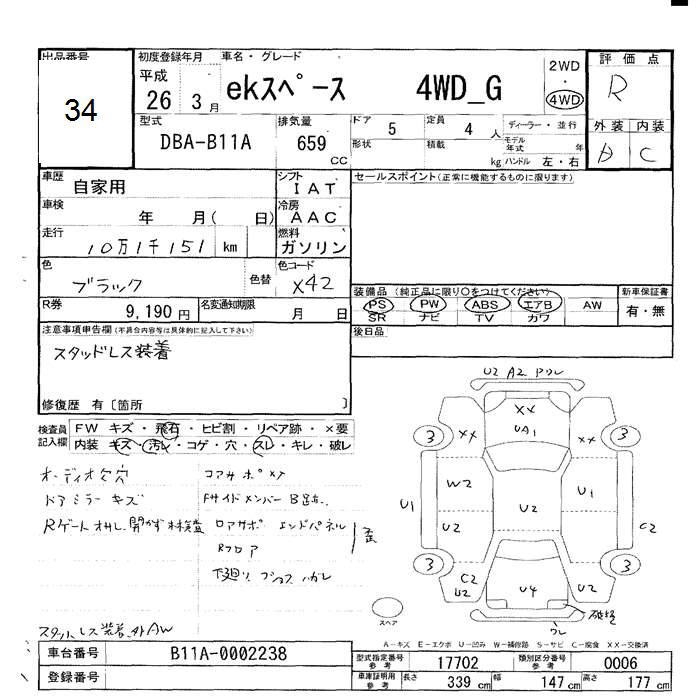 出品番号 初度登録年月 車名・グレード 2WD 評価点
34 平成 26 3月 ekスペース 4WD_G ・ 4WD R
型式 排気量 ドア 5 定員 4人 ディーラー・並行 外装 内装
DBA-B11A 659 CC 形状 積載 kg モデル年式 年 ハンドル 左・右 A C
車歴 自家用 シフト IAT セールスポイント(正常に機能するものに限ります)
車検 年 月( 日) 冷房 AAC
走行 10万1千151 km 燃料 ガソリン
色 ブラック 色替 色コード X42
装備品 (純正品に限り○をつけてください) 新車保証書
PS PW ABS エアB AW 有・無
SR ナビ TV カワ
R券 9,190円 名変通知期限 月 日
後日品
注意事項申告欄(不具合内容等は具体的に記入して下さい)
スタッドレス装着
修復歴 有〔箇所 〕
検査員記入欄 FW キズ・飛石・ヒビ割・リペア跡・×要
内装 キズ・汚レ・コゲ・穴・スレ・キレ・破レ
U2 A2 ワレ
XX
UA1
3 XX XX 3
W2 U1
U1 U2 U2 C2
3 3
C2 U2 U4 U2
破損
スペア ワレ
オーディオ欠穴 コアサポメタ
ドアミラーキズ Fサイドメンバー
Rゲートオサレ 開かず 未検査 ロアサポ エンドパネル 歪
Rフロア
下廻り
スタットレス装着 外AW
A－キズ E－エクボ U－凹み W－補修跡 S－サビ C－腐食 XX－交換済
車台番号 B11A-0002238 型式指定番号参考 17702 類別区分番号参考 0006
登録番号 車庫証明用参考 長さ 339 cm 幅 147 cm 高さ 177 cm